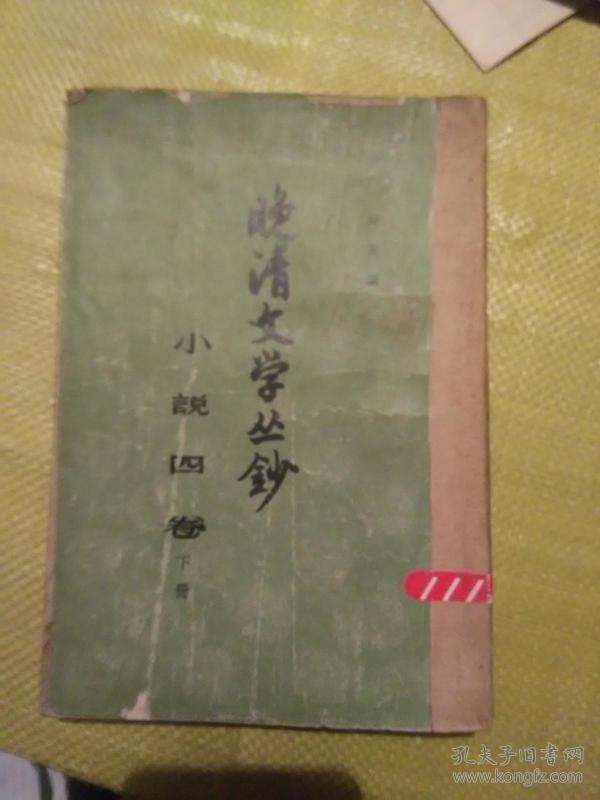 晚清文学丛鈔
小説四卷
下冊
孔夫子旧书网
www.kongfz.com